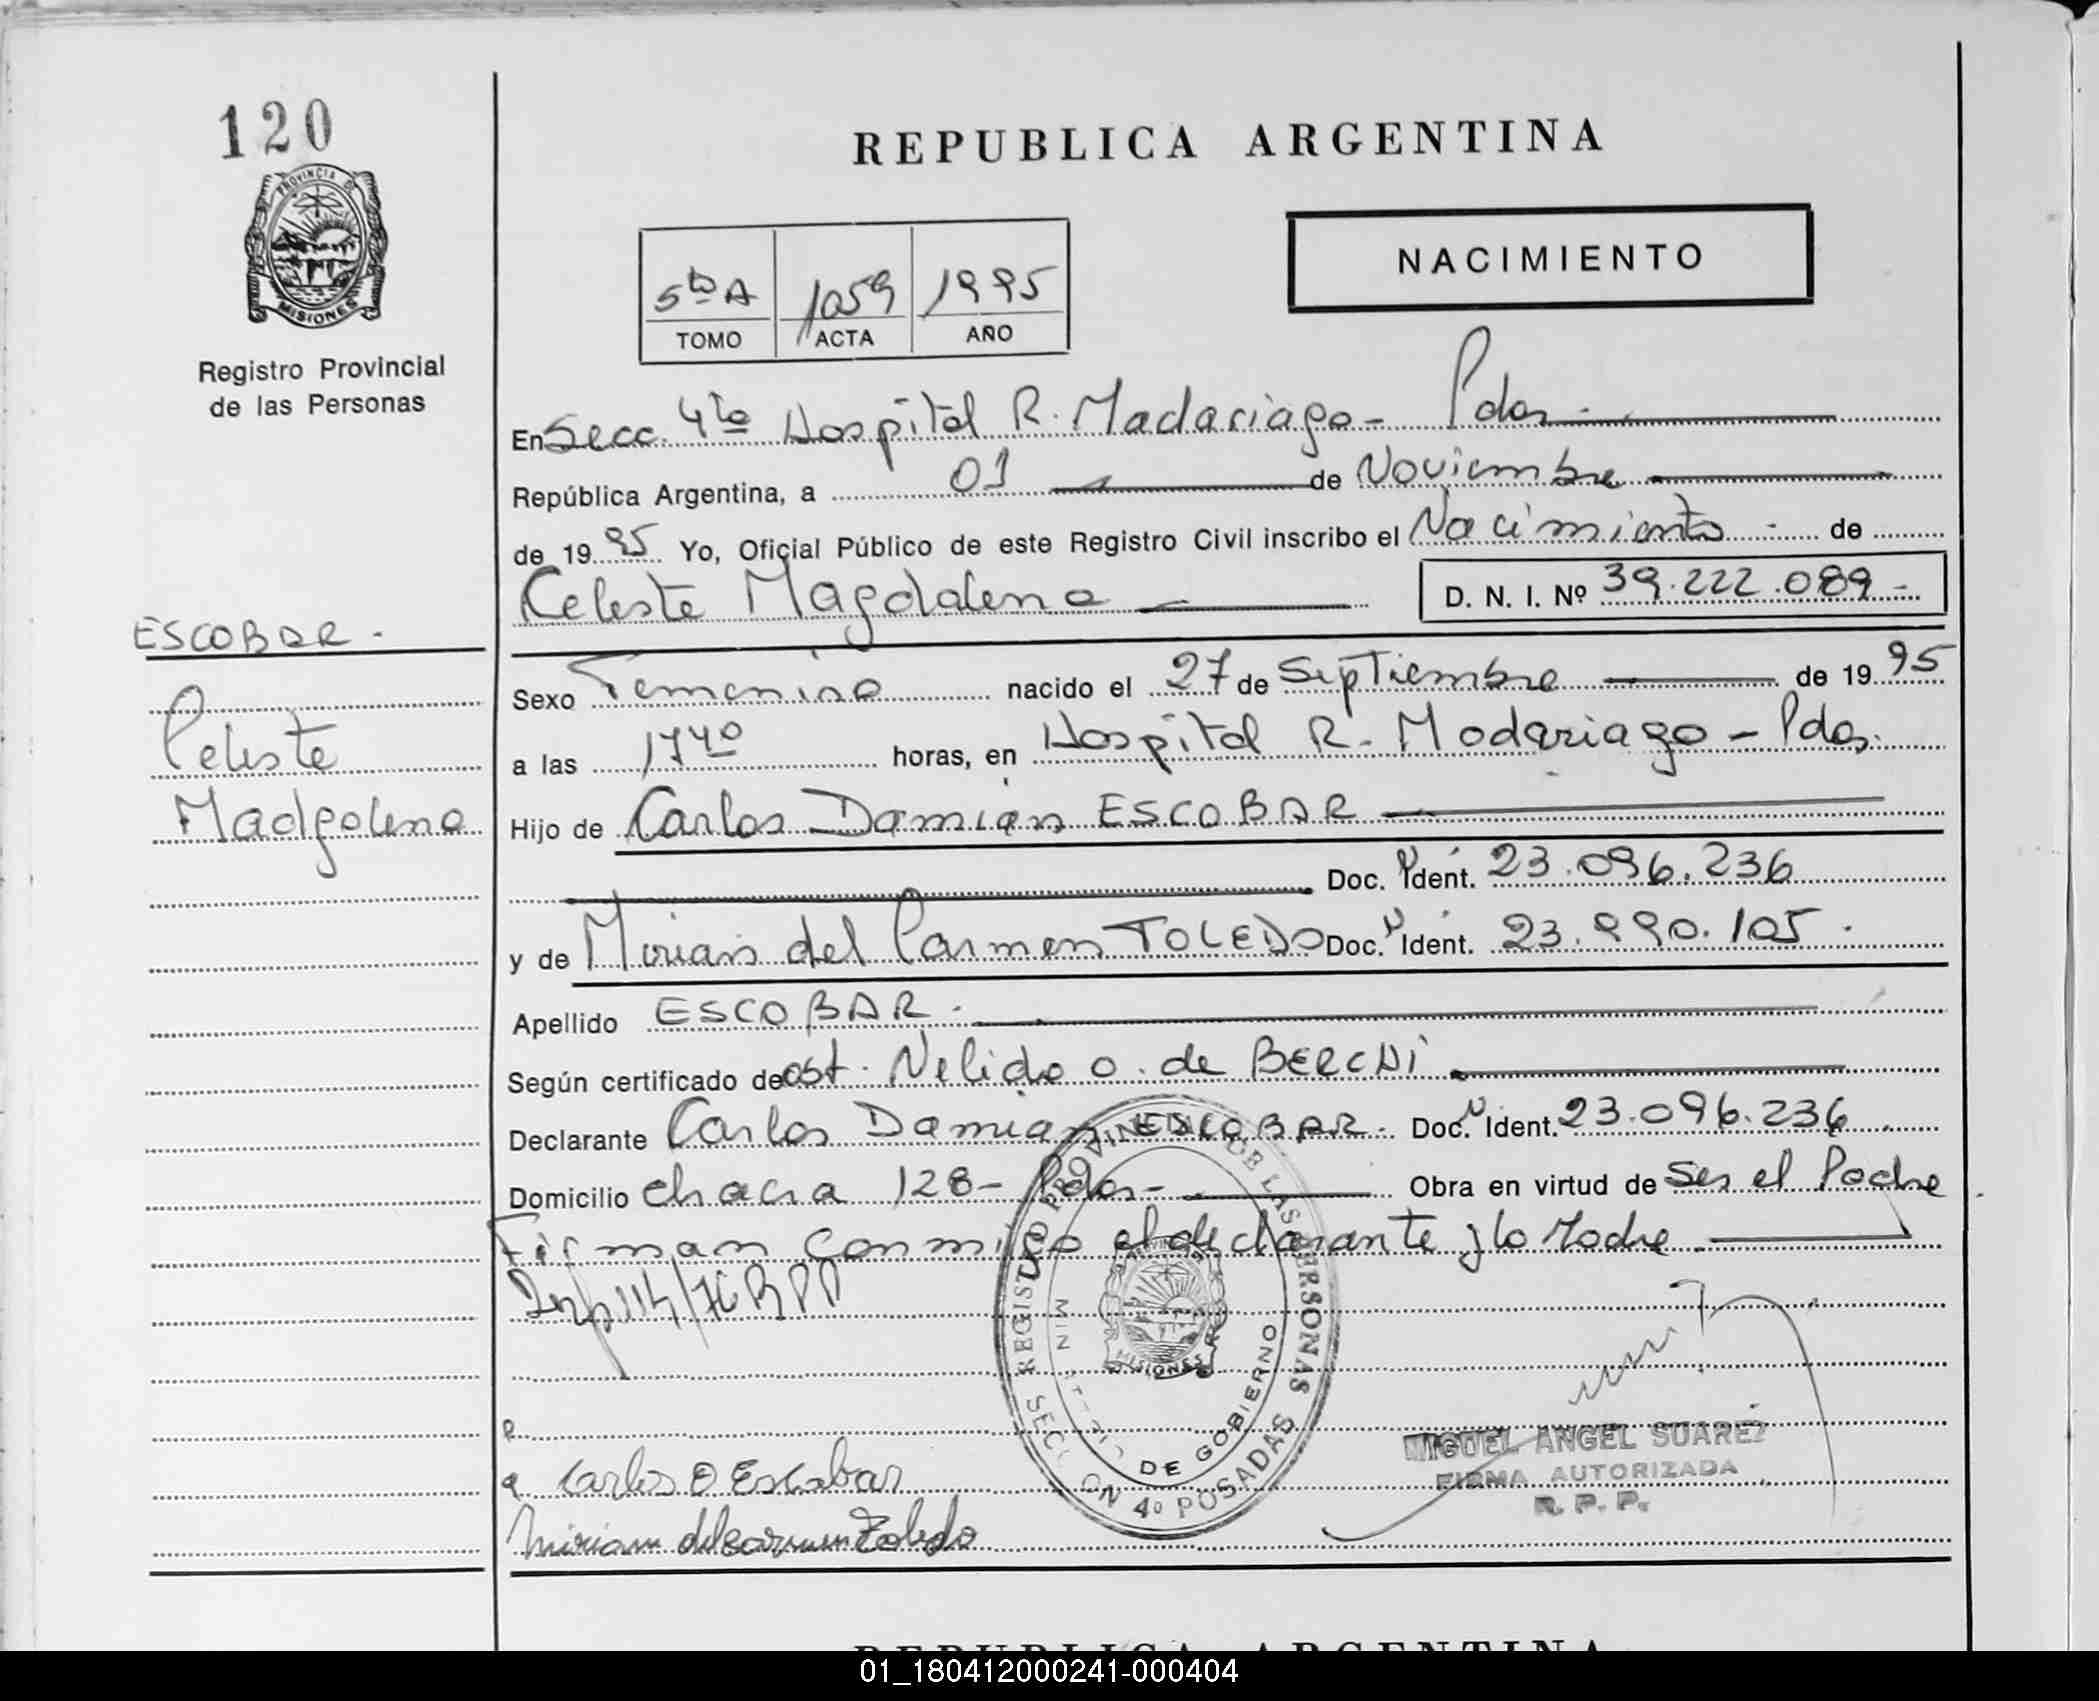 120
PROVINCIA DE
MISIONES
Registro Provincial
de las Personas
REPUBLICA ARGENTINA
NACIMIENTO
5to A 1059 1995
TOMO ACTA AÑO
En Secc. 4ta Hospital R. Madariaga - Pdas.
República Argentina, a 01 de Noviembre
de 1995 Yo, Oficial Público de este Registro Civil inscribo el Nacimiento de
Celeste Magdalena D. N. I. Nº 39.222.089 -
ESCOBAR -
Celeste
Madgalena
Sexo Femenino nacido el 27 de Septiembre de 1995
a las 17 40 horas, en Hospital R. Madariaga - Pdas.
Hijo de Carlos Damián ESCOBAR
Doc. N Ident. 23.096.236
y de Mirian del Carmen TOLEDO Doc. N Ident. 23.990.105.
Apellido ESCOBAR -
Según certificado de obst. Nelida O. de BERCHI
Declarante Carlos Damian ESCOBAR. Doc. N Ident. 23.096.236
Domicilio Chacra 128 - Pdas - Obra en virtud de Ser el Padre
Firman conmigo el declarante y la Madre
REGISTRO PROVINCIAL DE LAS PERSONAS
SECCION 4º POSADAS
DE GOBIERNO
MISIONES
Carlos D Escobar
Miriam del Carmen Toledo
MIGUEL ANGEL SUAREZ
FIRMA AUTORIZADA
R. P. P.
REPUBLICA ARGENTINA
01_180412000241-000404